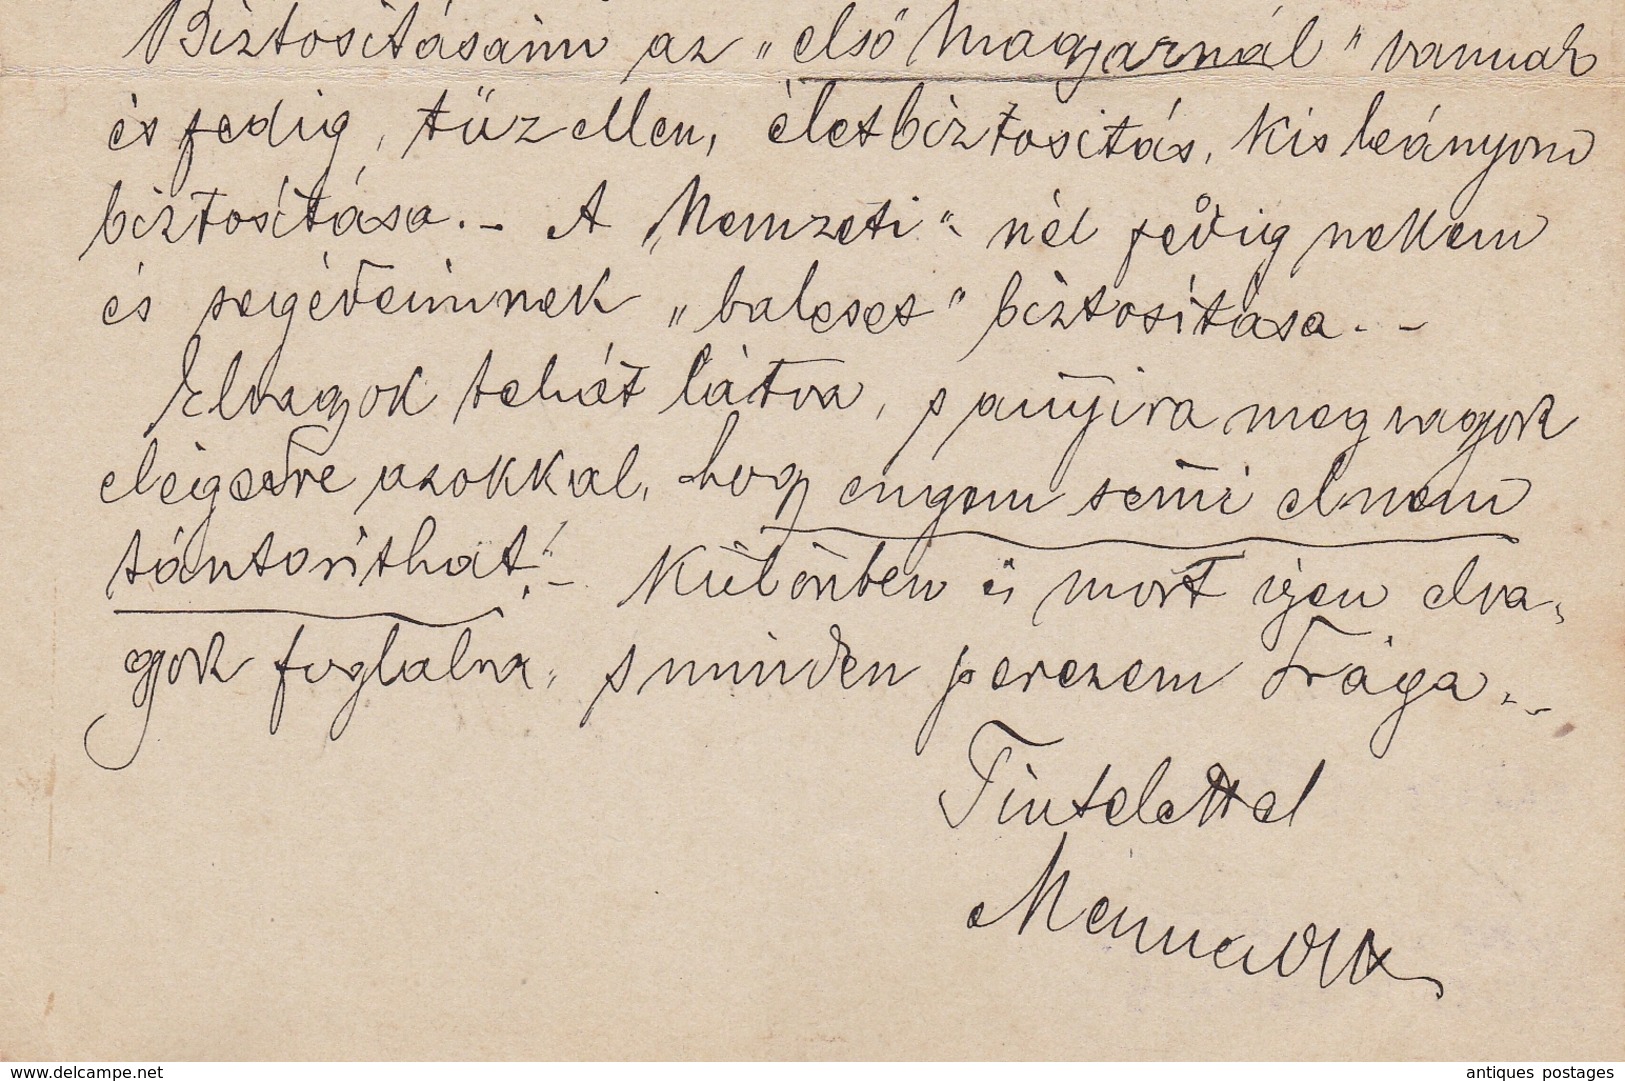 Biztosításaim az „első Magyarnál" vannak
és pedig, tűz ellen, életbiztosítás, Kis leányom
biztosítása. – A „Nemzeti" nél pedig nekem
és segédeimnek „baleset" biztosítása. –
Elvagyok tehát látva, s anyira meg vagyok
elégedve azokkal, hogy engem semi el nem
tántoríthat! – Különben is most igen elva-
gyok foglalva, s minden perczem drága. –
Tisztelettel
www.delcampe.net
antiques postages